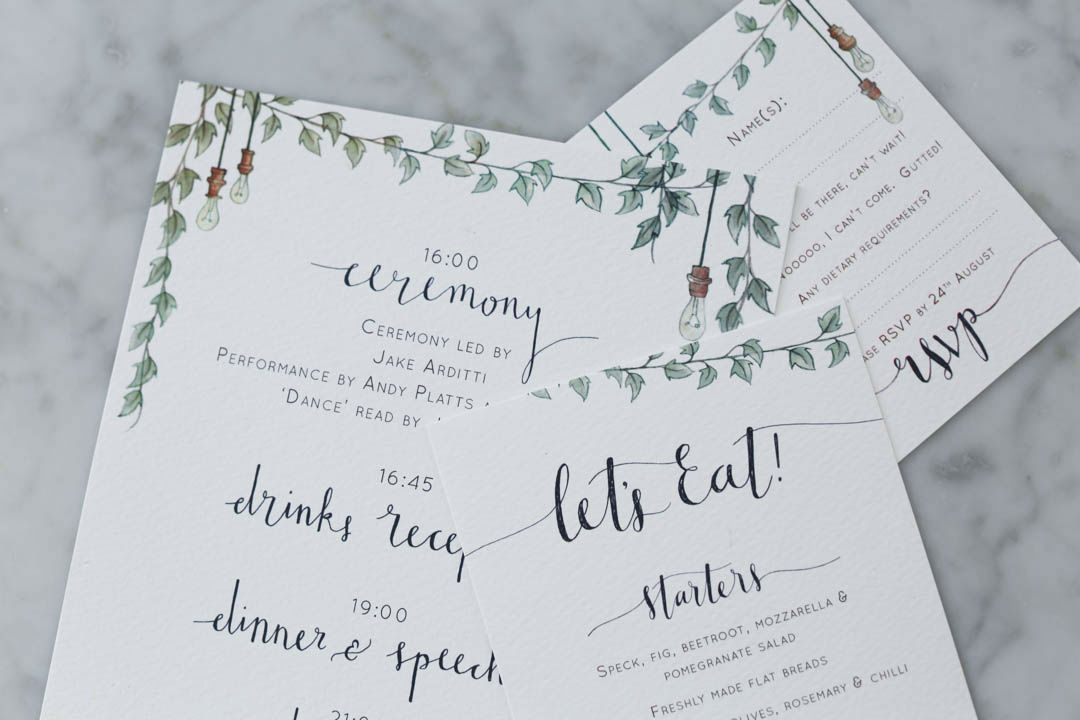 16:00
ceremony
Ceremony led by
Jake Arditti
Performance by Andy Platts
'Dance' read by
16:45
drinks
19:00
dinner & speech
Name(s):
be there, can't wait!
I can't come. Gutted!
Any dietary requirements?
RSVP by 24th August
rsvp
let's Eat!
starters
Speck, fig, beetroot, mozzarella &
pomegranate salad
Freshly made flat breads
rosemary & chilli